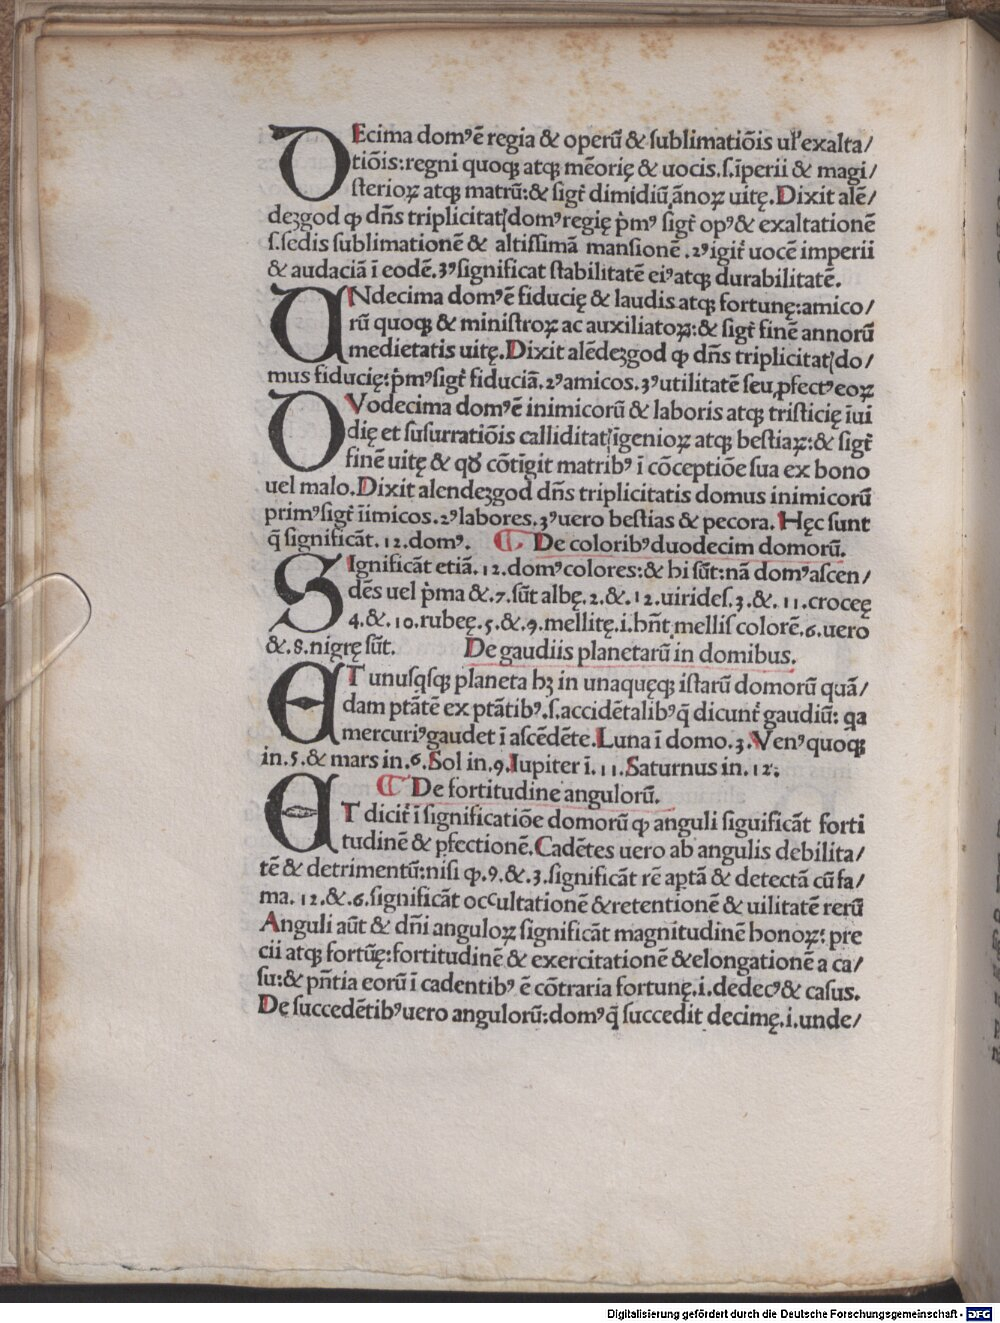 DEcima domꝰ ē regia & operū & ſublimatiōis ul' exalta/
tiōis: regni quoqꝫ atqꝫ mēorię & uocis. ſ. īperii & magi/
ſterioꝝ atqꝫ matrū: & ſigť dimidiū ānoꝝ uitę. Dixit alē/
deꝫgod ꝙ dn̄s triplicitatꝭ domꝰ regię p̓mꝰ ſigť opꝰ & exaltationē
ſ. ſedis ſublimationē & altiſſimā manſionē. 2ꝰ igiť uocē imperii
& audaciā ī eodē. 3ꝰ ſignificat ſtabilitatē eiꝰ atqꝫ durabilitatē.
VNdecima domꝰ ē fiducię & laudis atqꝫ fortunę: amico/
rū quoqꝫ & miniſtroꝝ ac auxiliatoꝝ: & ſigť finē annorū
medietatis uitę. Dixit alēdeꝫgod ꝙ dn̄s triplicitatꝭ do/
mus fiducię: p̓mꝰ ſigť fiduciā. 2ꝰ amicos. 3ꝰ utilitatē ſeu ꝓfectꝰ eoꝝ
DVodecima domꝰ ē inimicorū & laboris atqꝫ triſticię īui
dię et ſuſurratiōis calliditatꝭ īgenioꝝ atqꝫ beſtiaꝝ: & ſigť
finē uitę & qđ cōtīgit matribꝰ ī cōceptiōe ſua ex bono
uel malo. Dixit alendeꝫgod dn̄s triplicitatis domus inimicorū
primꝰ ſigť iīmicos. 2ꝰ labores. 3ꝰ uero beſtias & pecora. Hęc ſunt
q̄ ſignificāt. 12. domꝰ. ¶ De coloribꝰ duodecim domorū.
SIgnificāt etiā. 12. domꝰ colores: & hi ſūt: nā domꝰ aſcen/
dēs uel p̓ma &. 7. ſūt albę. 2. &. 12. uirides. 3. &. 11. croceę
4. &. 10. rubeę. 5. &. 9. mellitę. i. hn̄t mellis colorē. 6. uero
&. 8. nigrę ſūt. De gaudiis planetarū in domibus.
ET unuſqſqꝫ planeta hꝫ in unaquęqꝫ iſtarū domorū quā/
dam ptātē ex ptātibꝰ. ſ. accidētalibꝰ q̄ dicunť gaudiū: qa
mercuriꝰ gaudet ī aſcēdēte. Luna ī domo. 3. Venꝰ quoqꝫ
in. 5. & mars in. 6. Sol in. 9. Iupiter ī. 11. Saturnus in. 12:
¶ De fortitudine angulorū.
ET diciť ī ſignificatiōe domorū ꝙ anguli ſiguificāt forti
tudinē & ꝑfectionē. Cadētes uero ab angulis debilita/
tē & detrimentū: niſi ꝙ. 9. &. 3. ſignificāt rē aptā & detectā cū fa/
ma. 12. &. 6. ſignificāt occultationē & retentionē & uilitatē rerū
Anguli aūt & dn̄i anguloꝝ ſignificāt magnitudinē bonoꝝ: pre
cii atqꝫ fortūę: fortitudinē & exercitationē & elongationē a ca/
ſu: & pn̄tia eorū ī cadentibꝰ ē cōtraria fortunę. i. dedecꝰ & caſus.
De ſuccedētibꝰ uero angulorū: domꝰ q̄ ſuccedit decimę. i. unde/
Digitalisierung gefördert durch die Deutsche Forschungsgemeinschaft - DFG